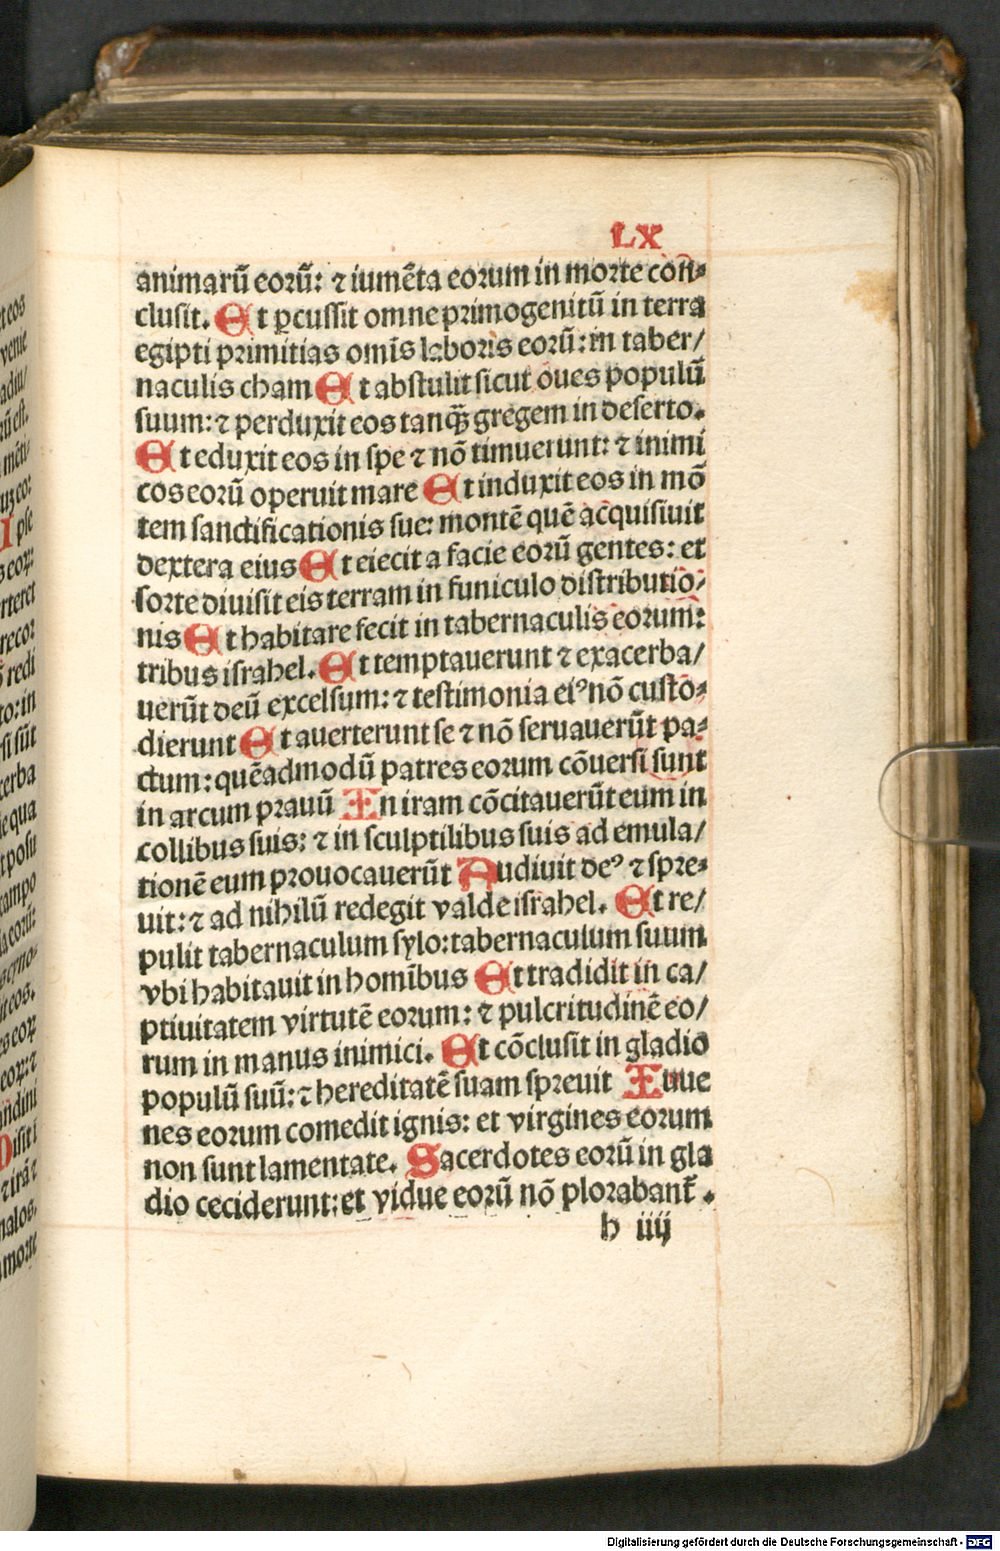 LX
animarū eorū: ⁊ iumēta eorum in morte con-
clusit. Et ꝑcussit omne primogenitū in terra
egipti primitias omīs laboris eorū: in taber/
naculis cham Et abstulit sicut oues populū
suum: ⁊ perduxit eos tanq̄ꝫ gregem in deserto.
Et eduxit eos in spe ⁊ nō timuerunt: ⁊ inimi
cos eorū operuit mare Et induxit eos in mō
tem sanctificationis sue: montē quē acquisiuit
dextera eius Et eiecit a facie eorū gentes: et
sorte diuisit eis terram in funiculo distributio-
nis Et habitare fecit in tabernaculis eorum:
tribus israhel. Et temptauerunt ⁊ exacerba/
uerūt deū excelsum: ⁊ testimonia eiꝰ nō custo-
dierunt Et auerterunt se ⁊ nō seruauerūt pa-
ctum: quēadmodū patres eorum cōuersi sunt
in arcum prauū In iram cōcitauerūt eum in
collibus suis: ⁊ in sculptilibus suis ad emula/
tionē eum prouocauerūt Audiuit deꝰ ⁊ spre-
uit: ⁊ ad nihilū redegit valde israhel. Et re/
pulit tabernaculum sylo: tabernaculum suum
vbi habitauit in homībus Et tradidit in ca/
ptiuitatem virtutē eorum: ⁊ pulcritudinē eo/
rum in manus inimici. Et cōclusit in gladio
populū suū: ⁊ hereditatē suam spreuit Iuue
nes eorum comedit ignis: et virgines eorum
non sunt lamentate. Sacerdotes eorū in gla
dio ceciderunt: et vidue eorū nō plorabant̄.
h iiij
Digitalisierung gefördert durch die Deutsche Forschungsgemeinschaft - DFG